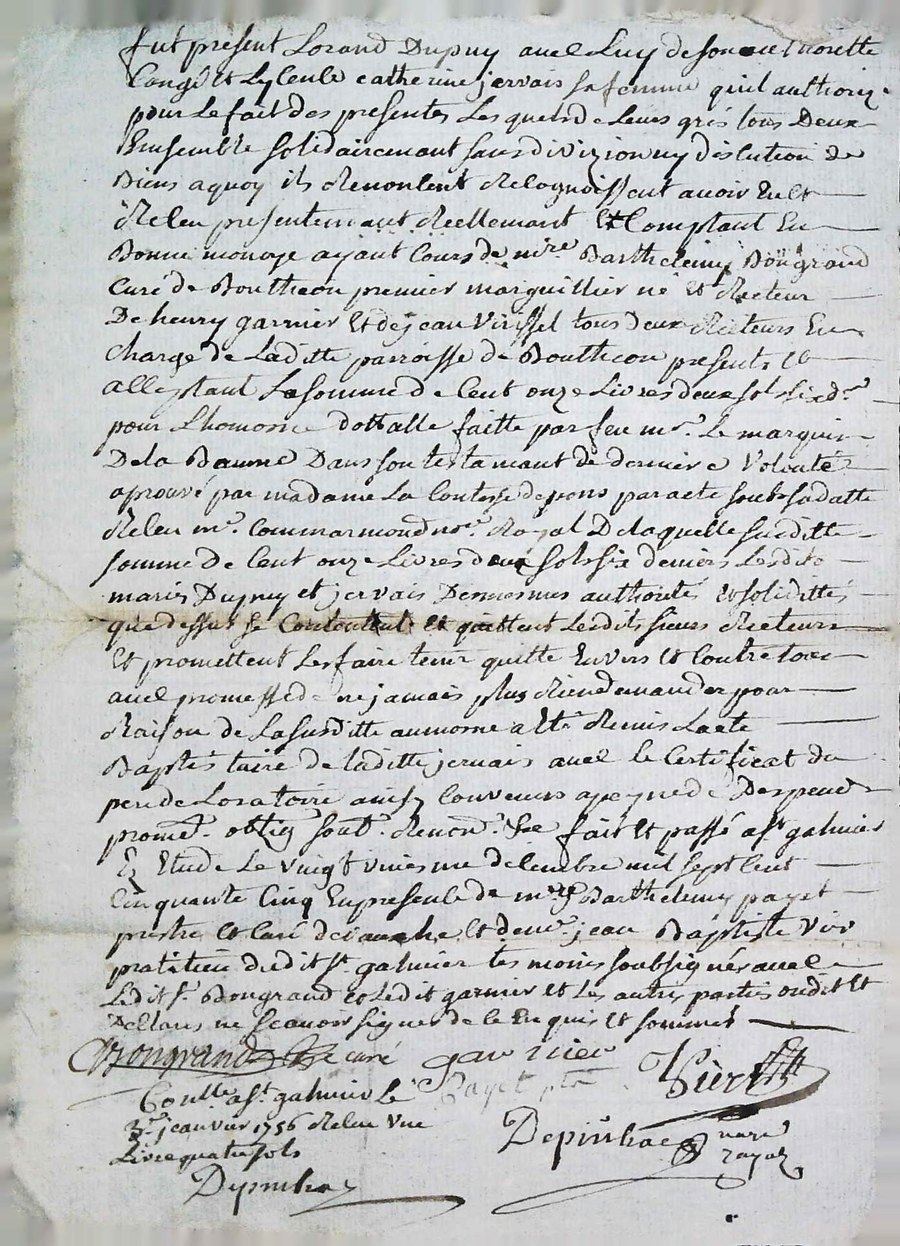 fut present Lorand Dupuy avec Luy de son
Congé et Lycence catherine jervais sa femme quil authoriz
pour Le fait des presentes Lesquels de Leurs grés tous Deux
Ensemble solidairemant sans divizion ny discution de
Biens aquoy ils Renoncent Recognoissent avoir Eu et
Receu presentemant Reellemant Et Comptant En
Bonne monoye ayant Cours de mire Barthelemy Bongrand
Curé de Boutheon premier marguillier né et Recteur
De henry garnier et de jean Virissel tous deux Recteurs En
Charge de Laditte parroisse de Boutheon presents et
acceptant La somme de Cent onze Livres deux sols six drs
pour L'homosne dottalle faitte par feu mr. Le marquis
De la Baume Dans son testamant de derniere Volonté
aprouvé par madame La Contesse de pons par acte soubs sa datte
Receu mr. Commarmond nore. Royal De laquelle suditte
somme de Cent onze Livres deux sols six deniers Lesdits
mariés Dupuy et jervais Desmesmes authorités et solidittés
que dessus se Contentent et quittent Lesdits sieurs Recteurs
Et promettent Les faire tenir quitte Envers et Contre tous
avec promesse de ne jamais plus Rien demander pour
Raison de La susditte aumosne a Eté Remis Lacte
Baptistaire de laditte jervais avec le Certificat du
pere de Loratoire ainsy Convenus a peyne de Despens
promet. oblig. soub. Renon. &c fait et passé a st galmier
Ez Etude Le vingt uniesme decembre mil sept Cent
Cinquante Cinq En presence de mire Barthelemy payet
prestre et Curé de et de mr. jean Baptiste Vier
pratitien dudit st. galmier tesmoins soubsignés avec
Ledit sr. Bongrand et Ledit garnier et Les autres parties ondit et
Declaré ne scavoir signer de ce Enquis et sommés
Bongrand curé garnier
Payet ptre Vier
Conllé a st. galmier Le
3e. janvier 1756 Receu Une
Livre quatre sols
Depinhac
Depinhac nore
royal